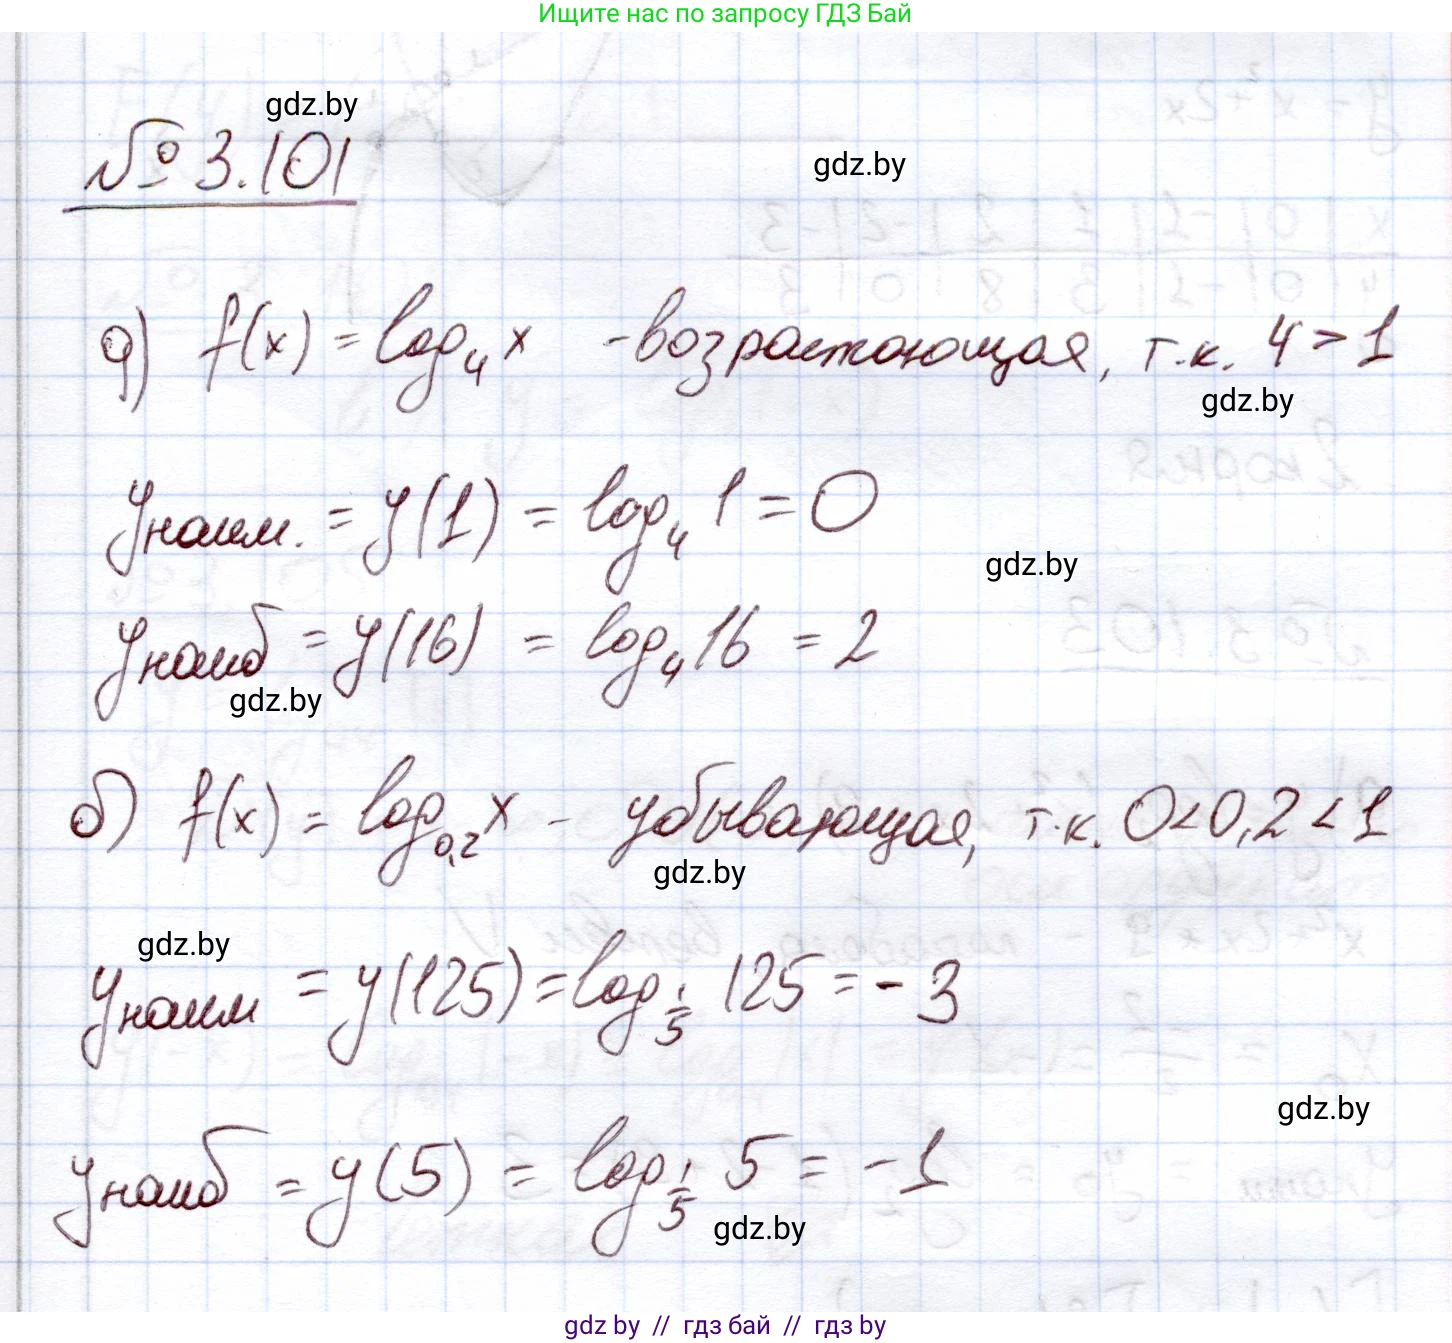 Ищите нас по запросу ГДЗ Бай
gdz.by
№ 3.101
gdz.by
а) f(x) = log₄ x - возрастающая, т.к. 4 > 1
gdz.by
yнаим. = y(1) = log₄ 1 = 0
gdz.by
yнаиб = y(16) = log₄ 16 = 2
gdz.by
б) f(x) = log₀,₂ x - убывающая, т.к. 0<0,2<1
gdz.by
gdz.by
yнаим = y(125) = log 1/5 125 = -3
gdz.by
yнаиб = y(5) = log 1/5 5 = -1
gdz.by
gdz by // гдз бай // гдз by